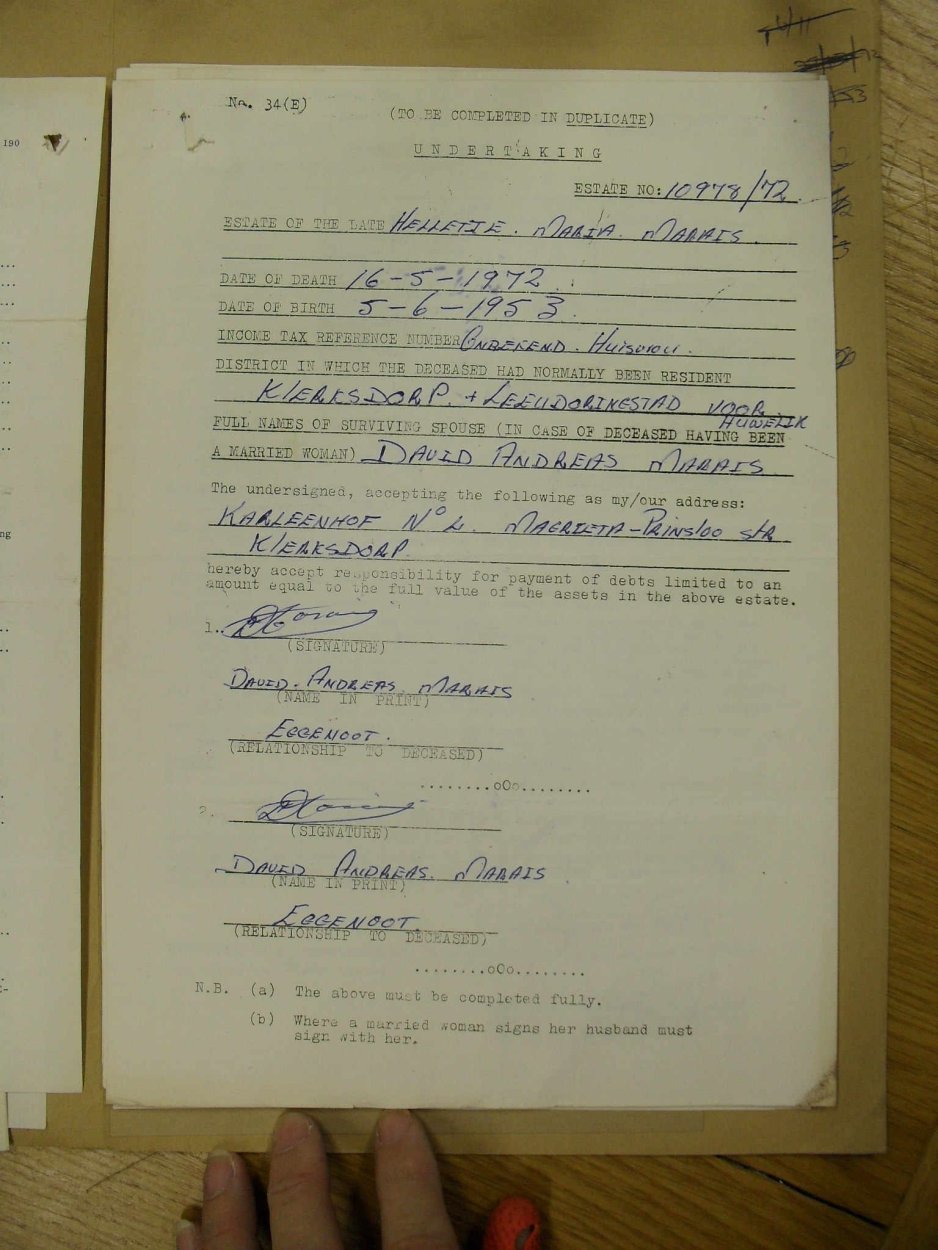 190
No. 34(E)
(TO BE COMPLETED IN DUPLICATE)
UNDERTAKING
ESTATE NO: 10978/72
ESTATE OF THE LATE HELLETJE. MARIA. MARAIS.
DATE OF DEATH 16-5-1972.
DATE OF BIRTH 5-6-1953.
INCOME TAX REFERENCE NUMBER ONBEKEND. HUISVROU.
DISTRICT IN WHICH THE DECEASED HAD NORMALLY BEEN RESIDENT
KLERKSDORP. + LEEUDORINGSTAD VOOR HUWELIK
FULL NAMES OF SURVIVING SPOUSE (IN CASE OF DECEASED HAVING BEEN
A MARRIED WOMAN) DAVID ANDREAS MARAIS
The undersigned, accepting the following as my/our address:
KARLEENHOF No 2. MAGRIETA-PRINSLOO STR
KLERKSDORP.
hereby accept responsibility for payment of debts limited to an
amount equal to the full value of the assets in the above estate.
1.
(SIGNATURE)
DAVID. ANDREAS. MARAIS
(NAME IN PRINT)
EGGENOOT.
(RELATIONSHIP TO DECEASED)
........oOo........
2.
(SIGNATURE)
DAVID ANDREAS. MARAIS
(NAME IN PRINT)
EGGENOOT
(RELATIONSHIP TO DECEASED)
........oOo........
N.B. (a) The above must be completed fully.
(b) Where a married woman signs her husband must
sign with her.